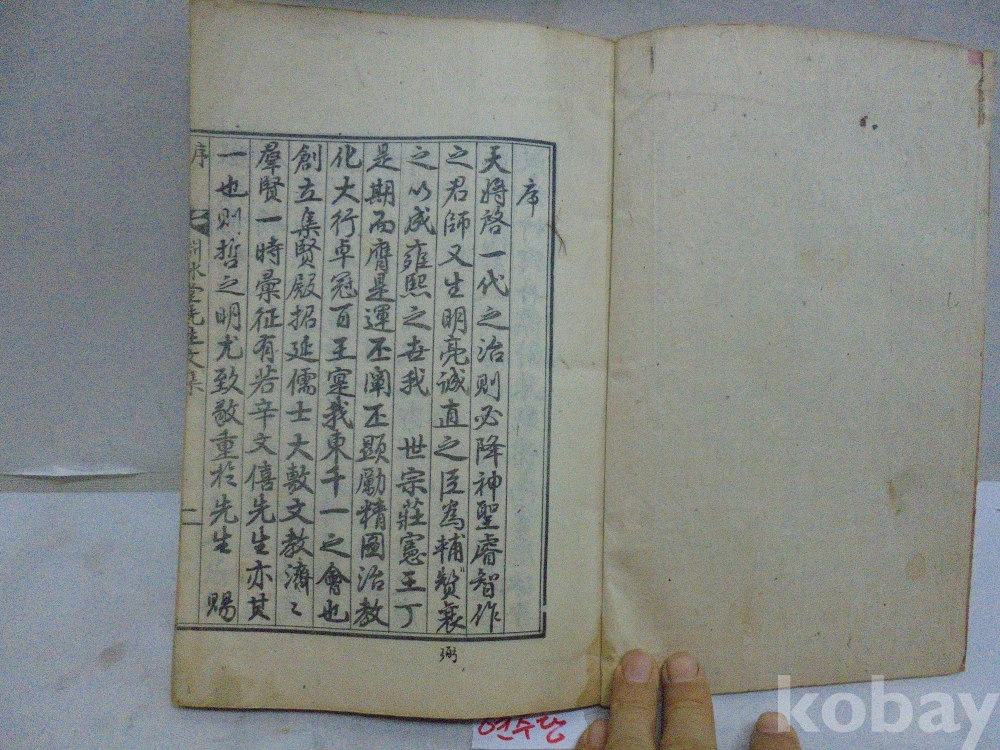 序
天將啓一代之治則必降神聖睿智作
之君師又生明亮誠直之臣為輔贊襄
之以成雍熙之世我 世宗莊憲王丁
是期而膺是運丕闡丕顯勵精圖治教
化大行卓冠百王寔我東千一之會也
創立集賢殿招延儒士大敷文教濟〻
羣賢一時彙征有若辛文僖先生亦其
一也則哲之明尤致敬重於先生 賜
序 淵氷堂先生文集 一
弼
연수당
kobay